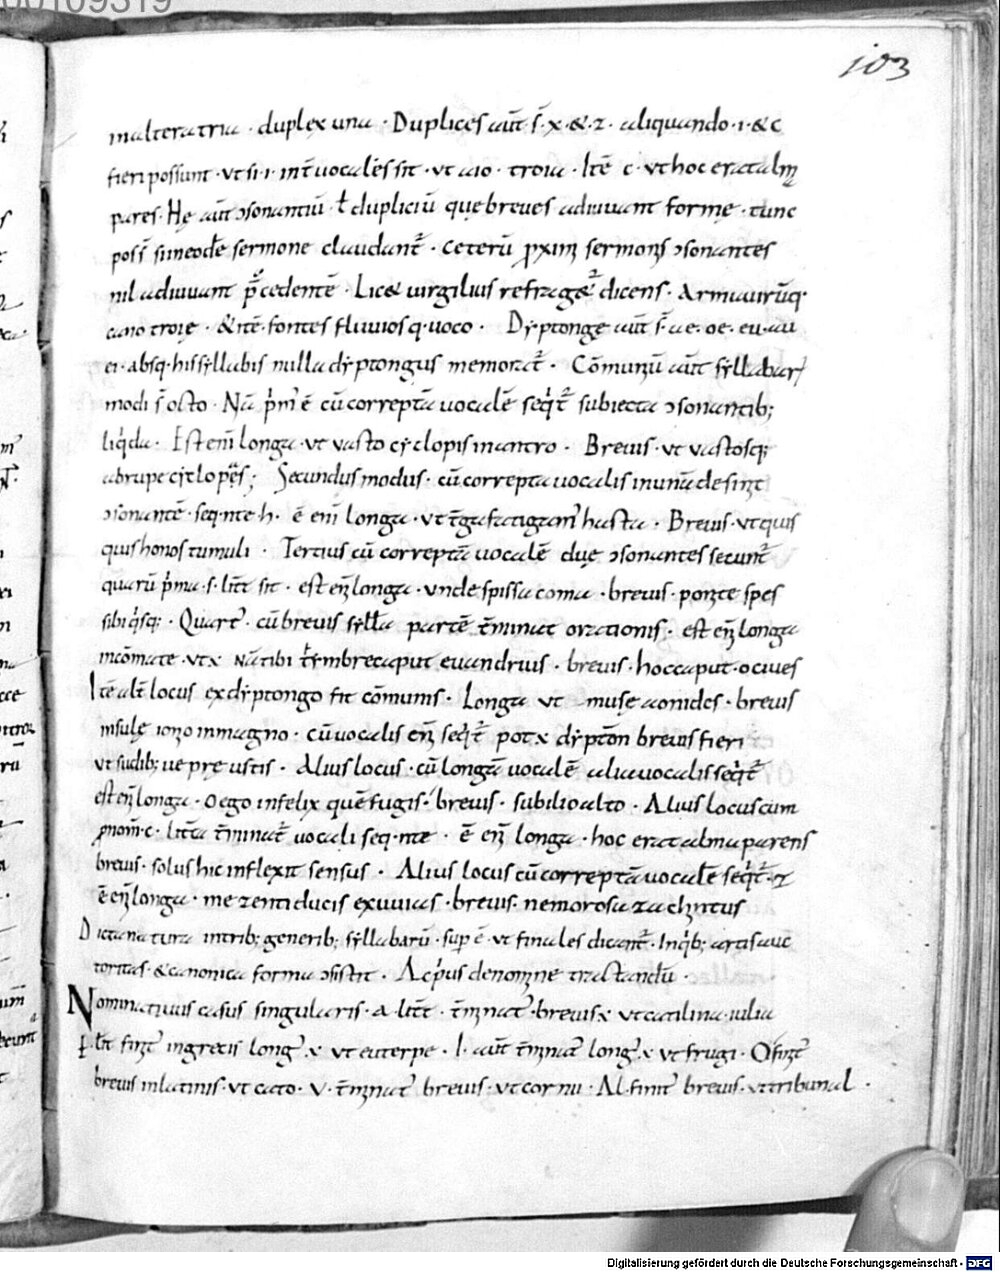 00109319
103
inalteratria · duplex una · Duplices aut̄ s̄ · x · & · z · aliquando · i · & c
fieri possunt · ut si · i · int̄ uocales sit · ut aio · troia · Itē c · ut hoc erat alm̄
pares · Hę aut̄ ɔsonantiū ł dupliciū quę breues adiuuant formę · tunc
poss̄ si in eodē sermone claudant̄ · ceterū p̱ximi sermonis ɔsonantes
nil adiuuant p̄cedentē · Lic& uirgilius refrag&̄ dicens · Arma uirūq·
cano troię · & itē · fontes fluuiosq· uoco · Dyptongę aut̄ s̄ · ae · oe · eu · au
ei · absq· his syllabis nulla dyptongus memorat̄ · Cōmuniū aut̄ syllabar
modi s̄ octo · Nā p̄m' ē cū correptā uocalē seqt̄ subiecta ɔsonantib;
liq'da · Est eni longa · ut uasto cyclopis in antro · Breuis · ut uastosq;
abrupe cyclopes; Secundus modus · cū correpta uocalis in unā desinit
ɔsonantē · seq·nte h · ē eni longa · ut t̄ga fatigam' hasta · Breuis · ut quis
quis honos tumuli · Tertius cū correptā uocalē duę ɔsonantes secunt̄
quarū p'ma · s · litt̄ sit · est en̄ longa · unde spissa coma · breuis · ponite spes
sibi q'sq; · Quart' · cū breuis sylla partē t̄minat orationis · est en̄ longa
incōmate · ut x nātibi tymbre caput euandrius · breuis · hoc caput · o ciues
Itē alt̄ locus ex dyptongo fit cōmunis · Longa ut musę aonides · breuis
insulę ionio in magno · cū uocalis en̄ seqt̄ potx dyptōn breuis fieri
ut sudib; ue pre ustis · Alius locus · cū longā uocalē alia uocalis seqt̄
est en̄ longa · o ego infelix quē fugis · breuis · sub ilio alto · Alius locus cum
p̱nom̄ · c · litt̄a t̄minat̄ uocali seq·nte · ē en̄ longa · hoc erat alma parens
breuis · solus hic inflexit sensus · Alius locus cū correptā uocalē seqt̄ · z
ē en̄ longa · mezenti ducis exuuias · breuis · nemorosa zachintus
Dicta natura in trib; generib; syllabarū · sup̄ ē · ut finales dicant̄ · In q'b; artis auc
toritas · & canonica forma ɔsistit · Ac p'us de nomine tractandū
Nominatiuus casus singularis · a · litt̄ · t̄minat̄ · breuis x ut catilina · iulia
E litt̄ finit ingrecis long' x ut euterpe · I · aut̄ t̄minat̄ long' x ut frugi · O finit
breuis inlatinis · ut cato · V · t̄minat̄ breuis · ut cornu · Al · finit̄ breuis · ut tribunal ·
Digitalisierung gefördert durch die Deutsche Forschungsgemeinschaft - DFG